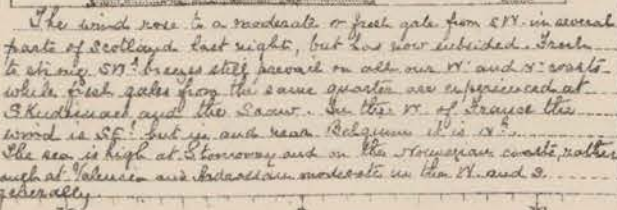 The wind rose to a moderate or fresh gale from SW. in several
parts of Scotland last night, but has now subsided. Fresh
to strong SWly breezes still prevail on all our W. and N. coasts
while fresh gales from the same quarter are experienced at
Skudesnaes and the Scaw. In the W. of France the
wind is SEly but in and near Belgium it is
The sea is high at Stornoway and on the Norwegian coasts, rather
rough at Valencia and Ardrossan moderate in the W. and S.
generally.